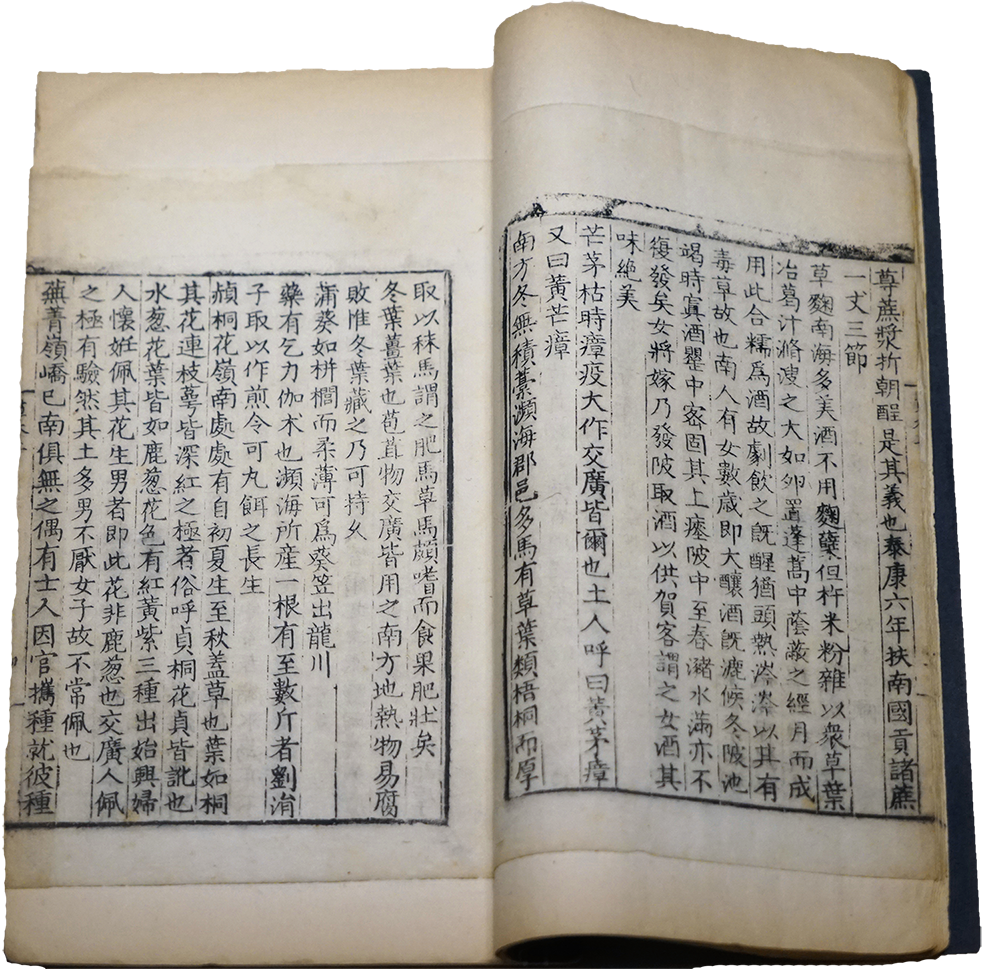 尊蔗漿折朝酲是其義也泰康六年扶南國貢諸蔗
一丈三節
草麴南海多美酒不用麴糵但杵米粉雜以衆草葉
冶葛汁滫溲之大如卵置蓬蒿中蔭蔽之經月而成
用此合糯爲酒故劇飲之旣醒猶頭熱涔涔以其有
毒草故也南人有女數歳即大釀酒旣漉候冬陂池
竭時寘酒罌中密固其上瘞陂中至春瀦水滿亦不
復發矣女將嫁乃發陂取酒以供賀客謂之女酒其
味絶美
芒茅枯時瘴疫大作交廣皆爾也土人呼曰黃茅瘴
又曰黃芒瘴
南方冬無積藁瀕海郡邑多馬有草葉類梧桐而厚
取以秣馬謂之肥馬草馬頗嗜而食果肥壯矣
冬葉薑葉也苞苴物交廣皆用之南方地熱物易腐
敗惟冬葉藏之乃可持乆
蒲葵如栟櫚而柔薄可爲葵笠出龍川
藥有乞力伽术也瀕海所産一根有至數斤者劉涓
子取以作煎令可丸餌之長生
赬桐花嶺南處處有自初夏生至秋盖草也葉如桐
其花連枝萼皆深紅之極者俗呼貞桐花貞皆訛也
水葱花葉皆如鹿葱花色有紅黃紫三種出始興婦
人懷妊佩其花生男者即此花非鹿葱也交廣人佩
之極有驗然其土多男不厭女子故不常佩也
蕪菁嶺嶠已南俱無之偶有士人因官攜種就彼種